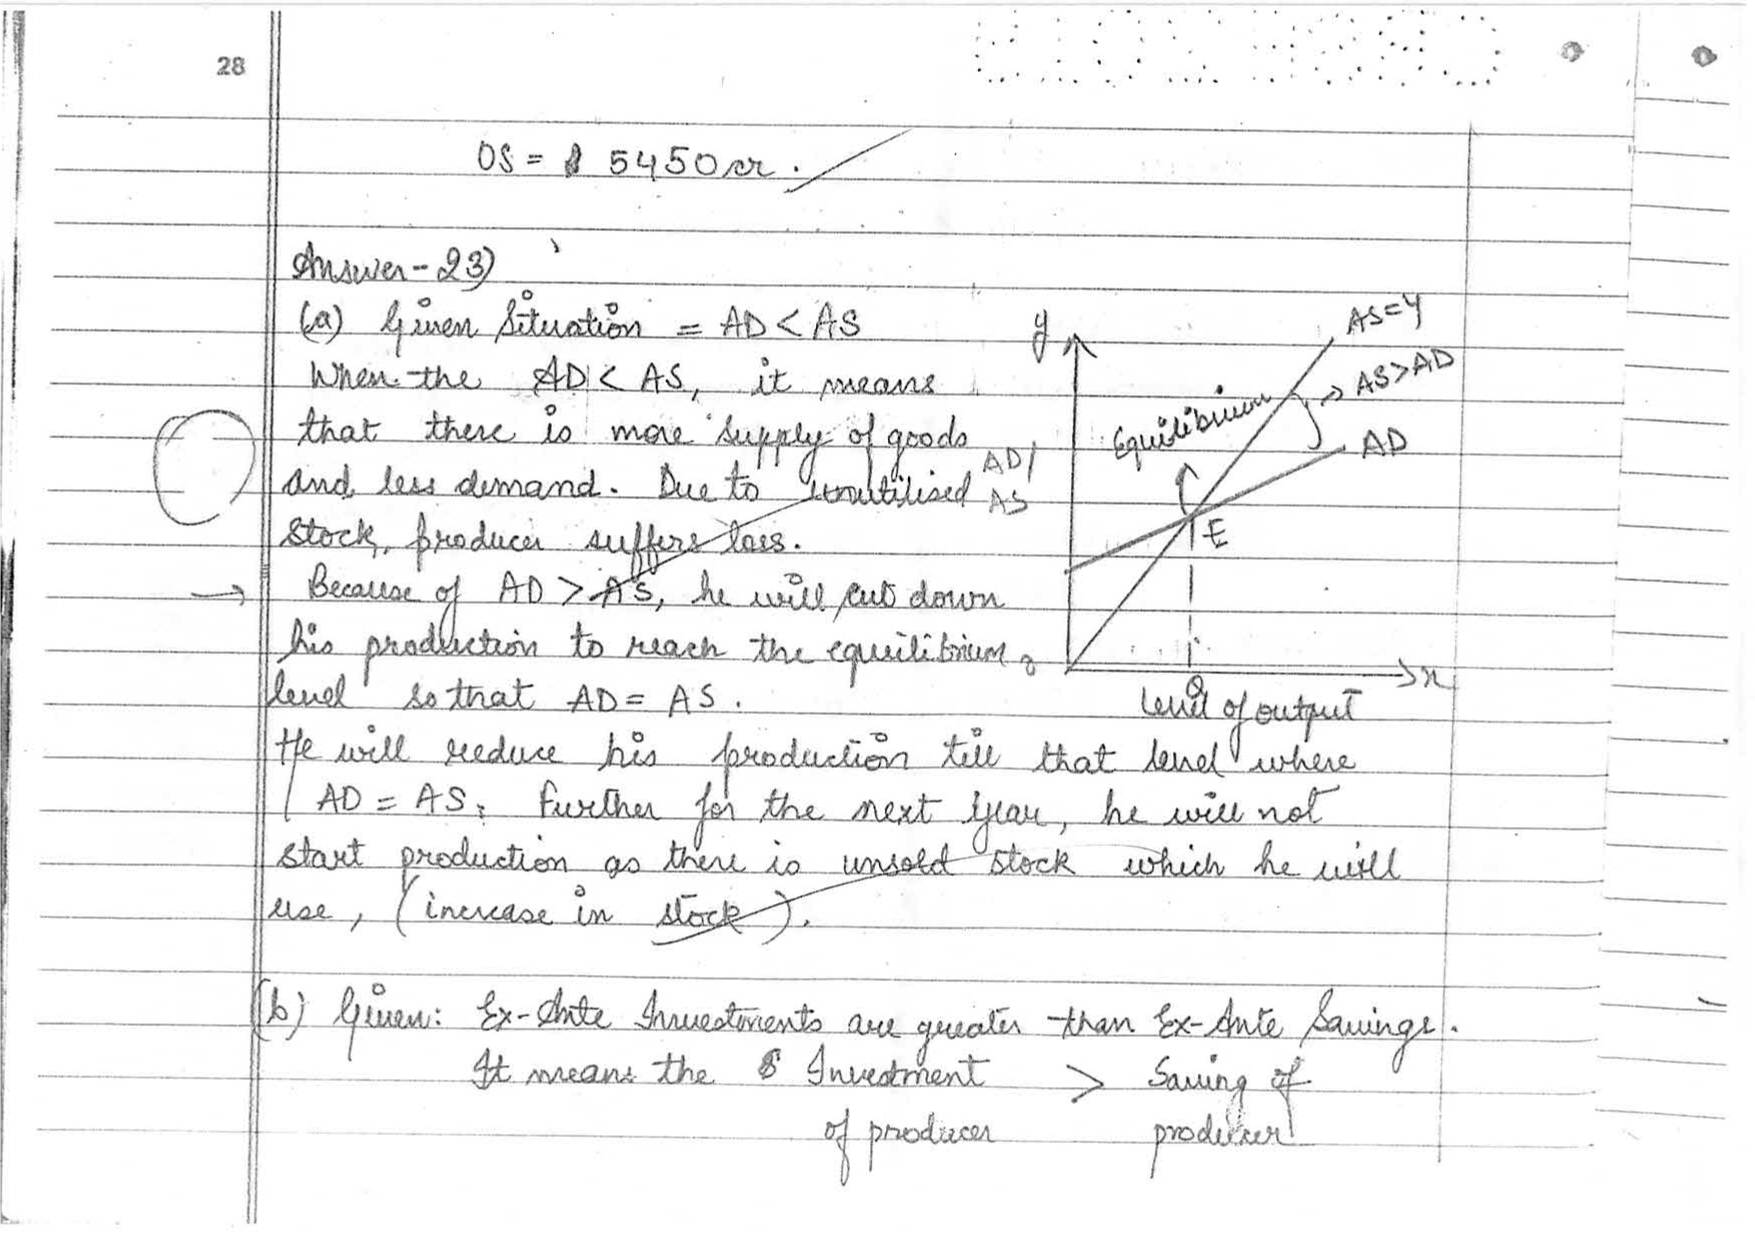 28
OS = 5450 cr.
Answer-23)
(a) Given Situation = AD < AS
When the AD < AS, it means
that there is more supply of goods
and less demand. Due to unutilised
stock, producer suffers loss.
→ Because of AD > AS, he will cut down
his production to reach the equilibrium
level so that AD = AS.
He will reduce his production till that level where
AD = AS; Further for the next year, he will not
start production as there is unsold stock which he will
use, (increase in stock).
y
AS=Y
AS>AD
Equilibrium
AD
AD/
AS
E
o
Q
x
Level of output
(b) Given: Ex-Ante Investments are greater than Ex-Ante Savings.
It means the Investment > Saving of
of producer producer